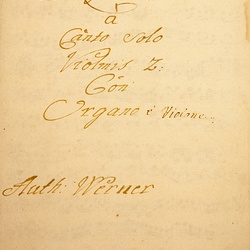 à
Canto Solo
Violinis 2:
Con
Organo è Violone
Auth: Werner